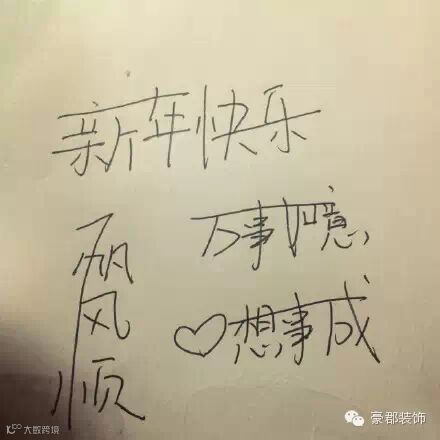 新年快乐
一帆风顺
万事如意
♡想事成
大数跨境
豪郡装饰